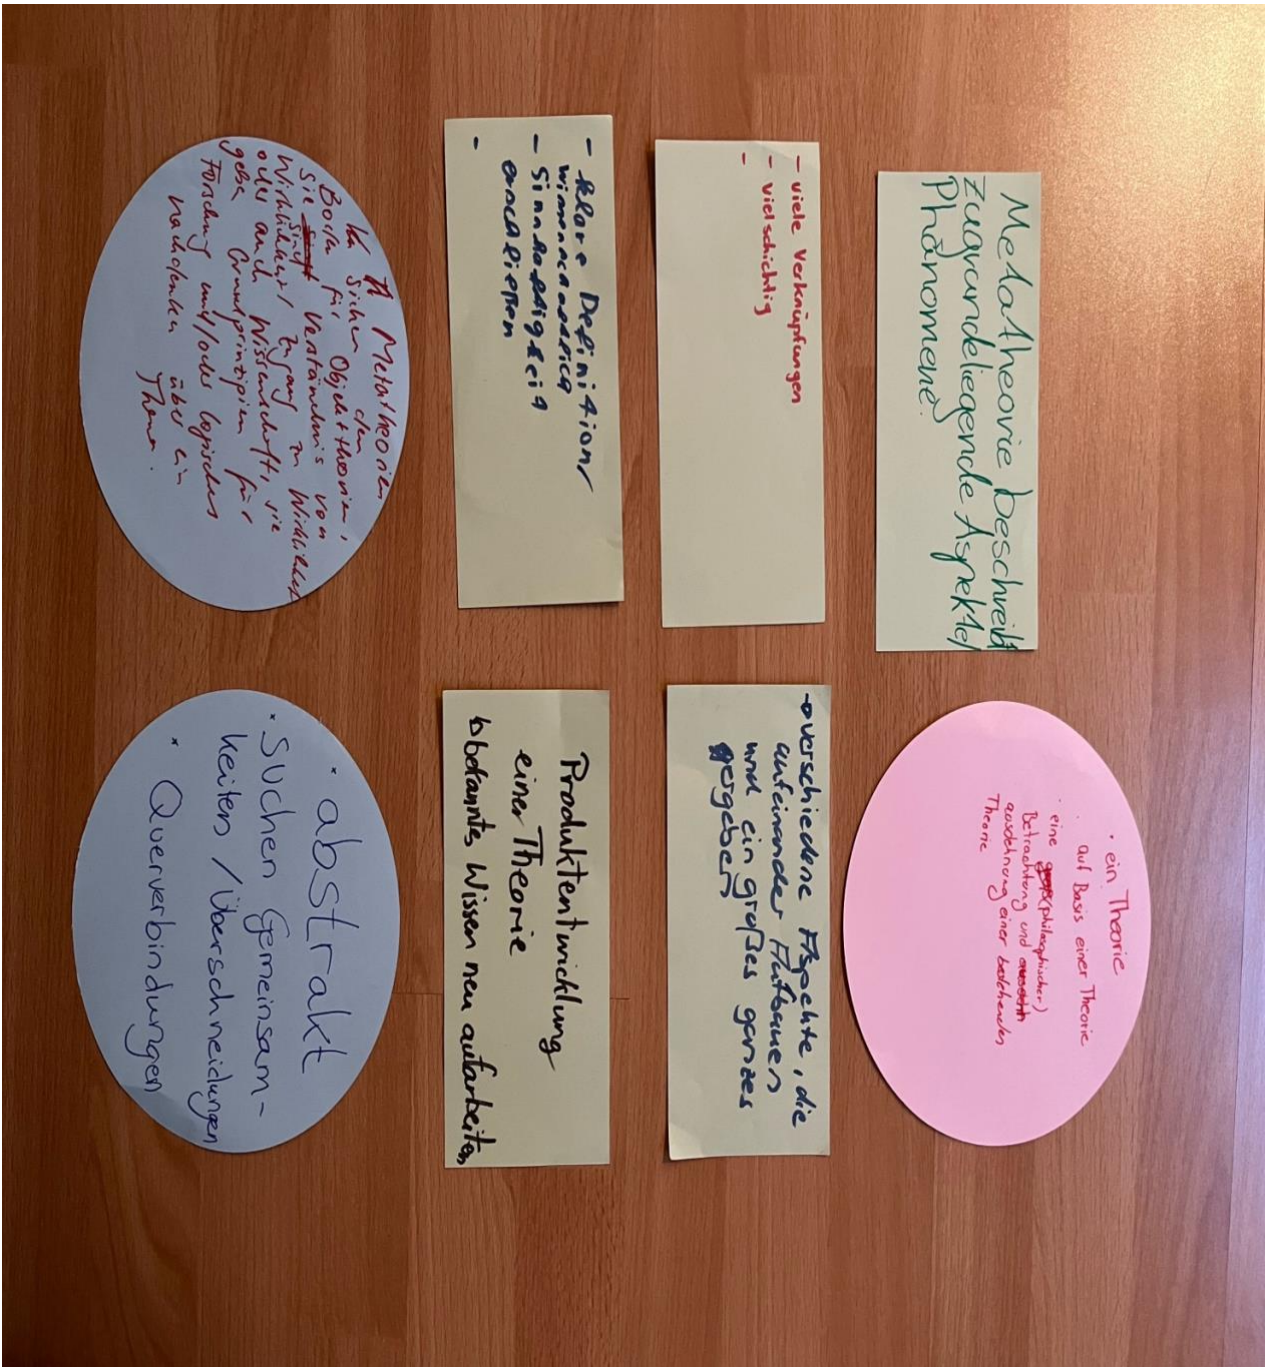 Metatheorie beschreibt
zugrundeliegende Aspekte/
Phänomene.
- viele Verknüpfungen
- vielschichtig
-
- klare Definition/
- Sinnhaftigkeit
erschließen
-
Metatheorien
sichern den
Boden für Objekttheorien,
sie sind Verständnis von
Wirklichkeit/ Zugang zu Wirklichkeit
oder auch Wissenschaft, sie
geben Grundprinzipien für
Forschung und/oder logisches
nachdenken über ein
Thema.
• ein Theorie
auf Basis einer Theorie
• eine (philosophischer)
Betrachtung und
ausdehnung einer bestehenden
Theorie
→ verschiedene Aspekte, die
aufeinander Aufbauen
und ein großes ganzes
ergeben
Produktentwicklung
einer Theorie
↳ bekanntes Wissen neu aufarbeiten
• abstrakt
• suchen Gemeinsam-
keiten / Überschneidungen
• Querverbindungen